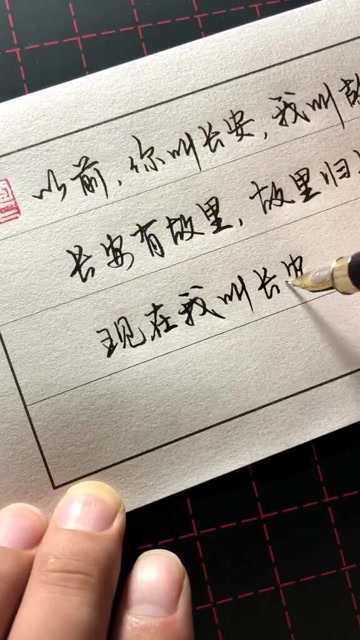 以前，你叫长安，我叫故
长安有故里，故里归
现在我叫长安